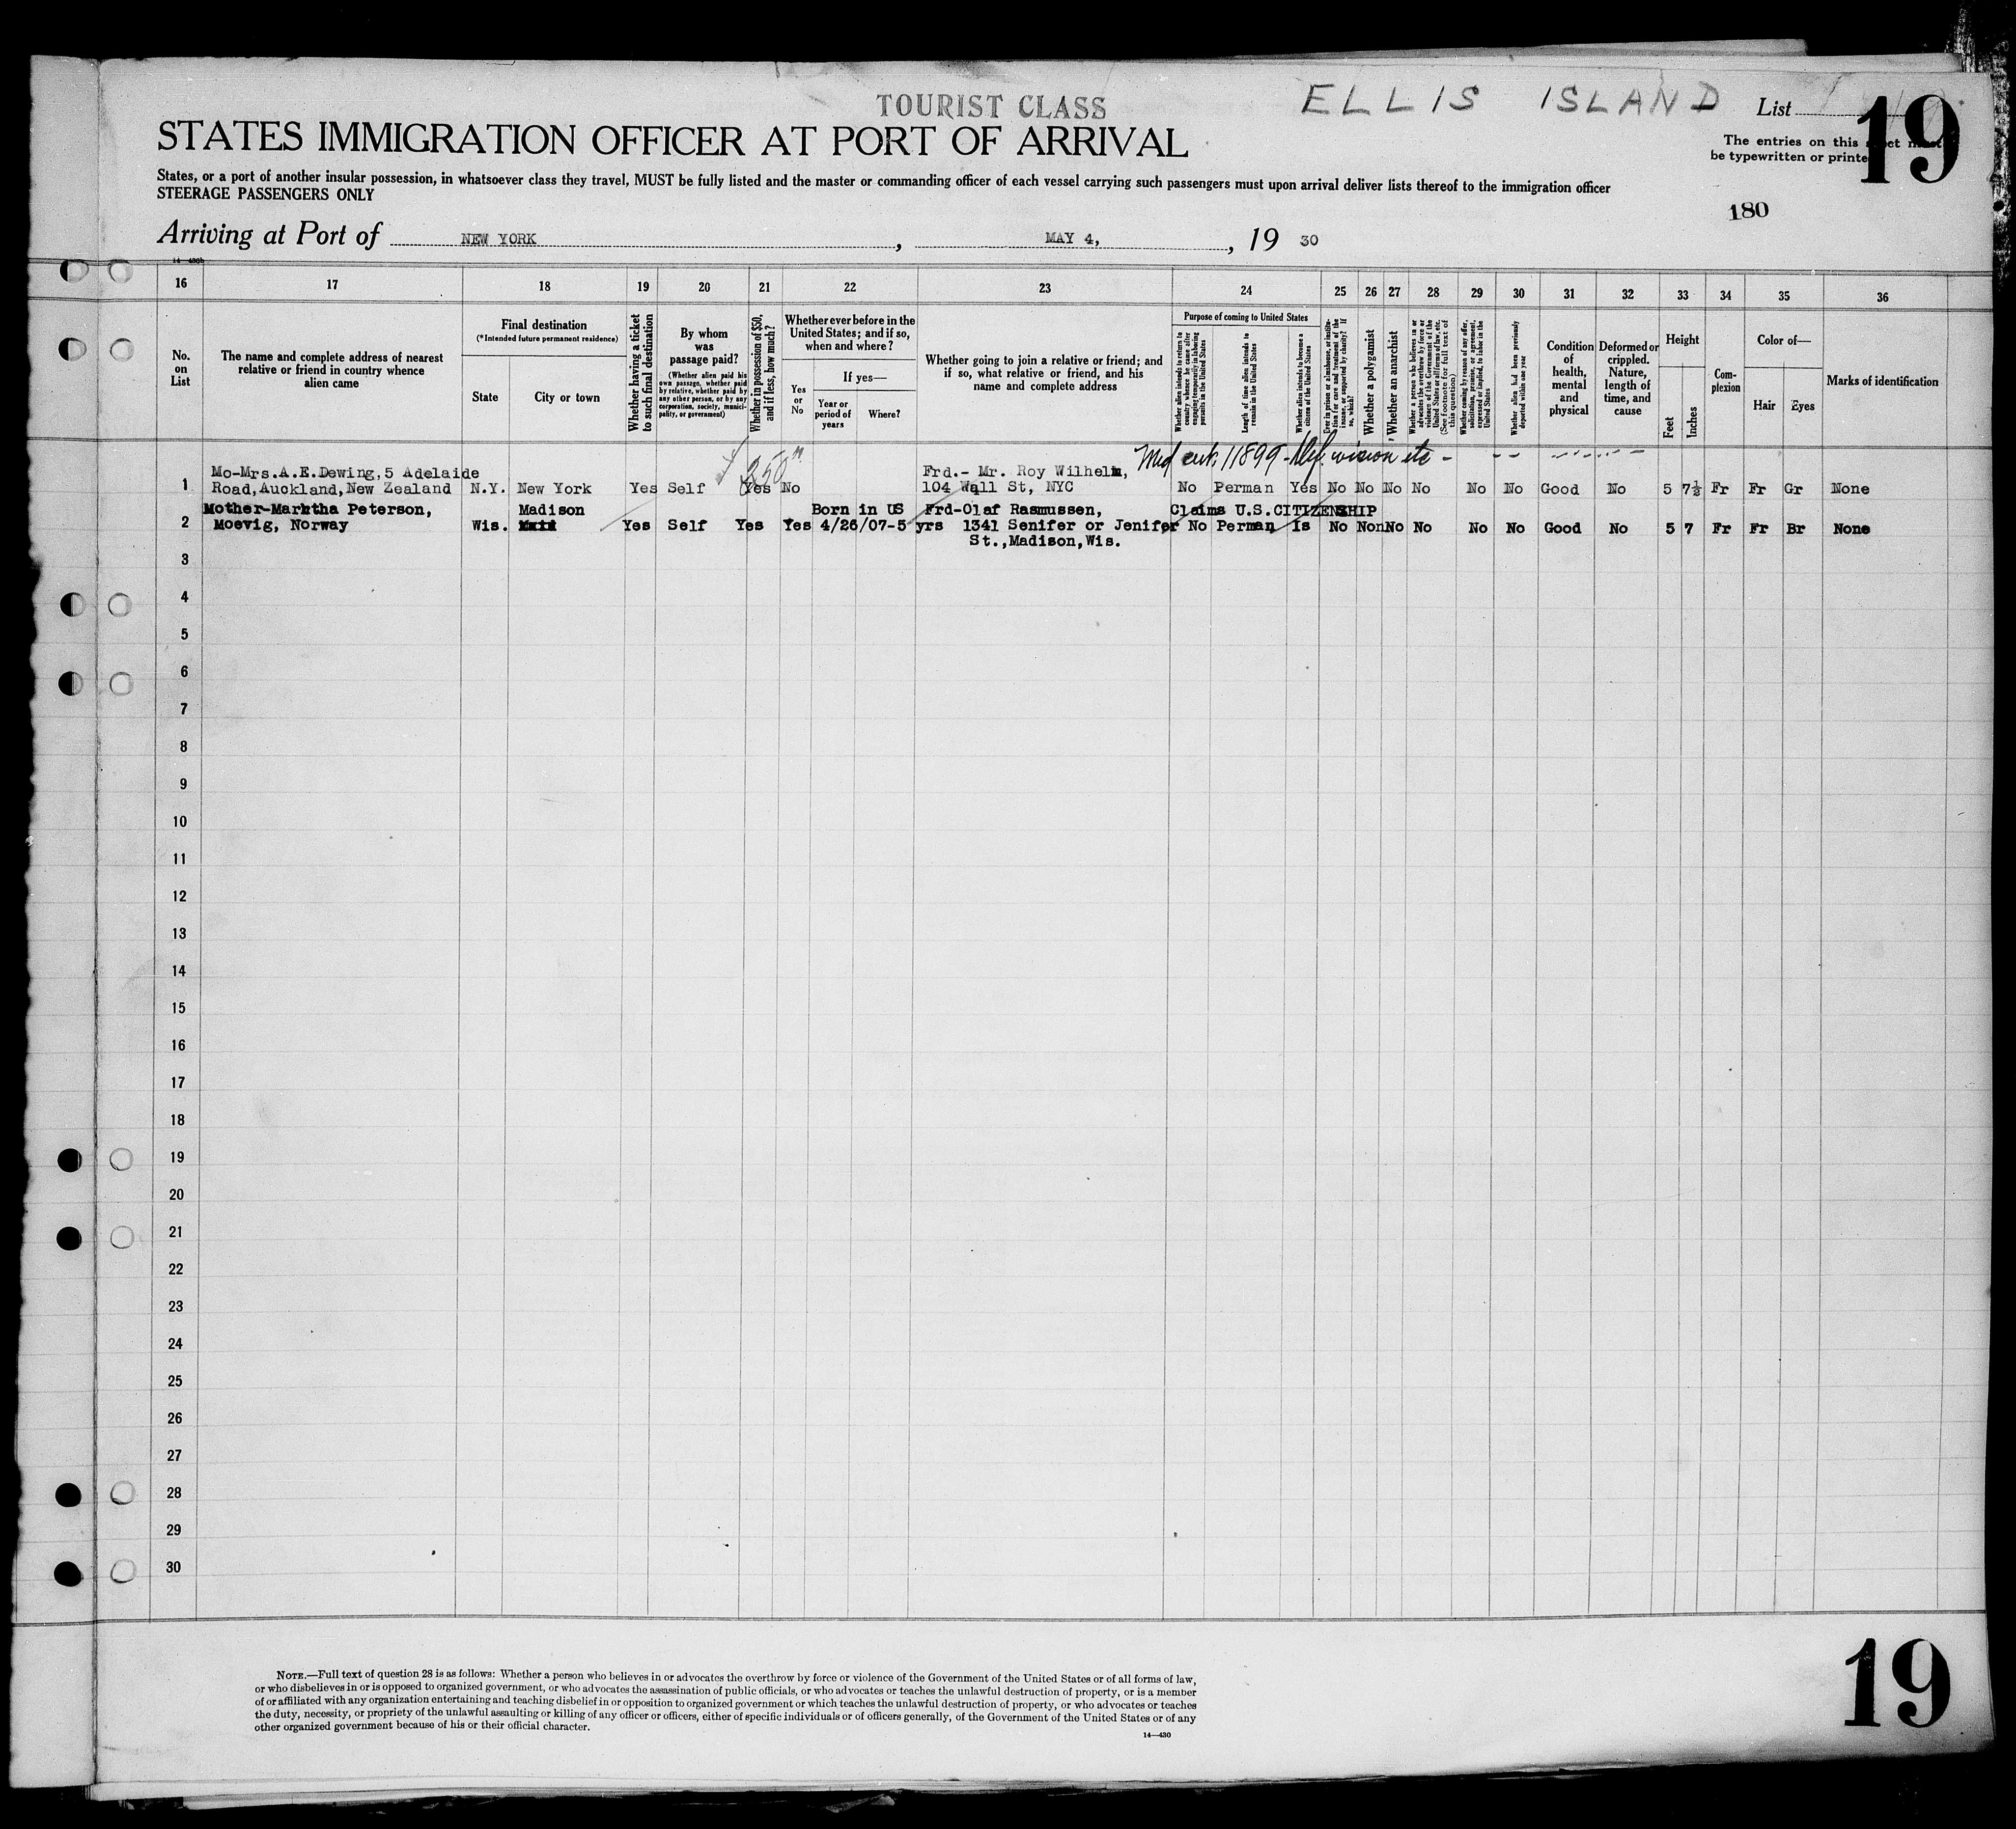 TOURIST CLASS
ELLIS ISLAND
List
19
STATES IMMIGRATION OFFICER AT PORT OF ARRIVAL
The entries on this
be typewritten or printed
States, or a port of another insular possession, in whatsoever class they travel, MUST be fully listed and the master or commanding officer of each vessel carrying such passengers must upon arrival deliver lists thereof to the immigration officer
STEERAGE PASSENGERS ONLY
180
Arriving at Port of NEW YORK, MAY 4, , 19 30
16 17 18 19 20 21 22 23 24 25 26 27 28 29 30 31 32 33 34 35 36
No. on List
The name and complete address of nearest relative or friend in country whence alien came
Final destination
(*Intended future permanent residence)
State
City or town
Whether having a ticket to such final destination
By whom was passage paid?
(Whether alien paid his own passage, whether paid by relative, whether paid by any other person, or by any corporation, society, municipality, or government)
Whether in possession of $50, and if less, how much?
Whether ever before in the United States; and if so, when and where?
Yes or No
If yes—
Year or period of years
Where?
Whether going to join a relative or friend; and if so, what relative or friend, and his name and complete address
Purpose of coming to United States
Whether alien intends to return to country whence he came after engaging temporarily in laboring pursuits in the United States
Length of time alien intends to remain in the United States
Whether alien intends to become a citizen of the United States
Ever in prison or almshouse, or institution for care and treatment of the insane, or supported by charity? If so, which?
Whether a polygamist
Whether an anarchist
Whether a person who believes in or advocates the overthrow by force or violence of the Government of the United States or all forms of law, etc. (See footnote for full text of this question)
Whether coming by reason of any offer, solicitation, promise, or agreement, expressed or implied, to labor in the United States
Whether alien had been previously deported within one year
Condition of health, mental and physical
Deformed or crippled. Nature, length of time, and cause
Height
Feet
Inches
Complexion
Color of—
Hair
Eyes
Marks of identification
250 Med cert. 11899 - Def. vision etc -
Mo-Mrs.A.E.Dewing,5 Adelaide Frd.- Mr. Roy Wilhelm,
1 Road,Auckland,New Zealand N.Y. New York Yes Self Yes No 104 Wall St, NYC No Perman Yes No No No No No No Good No 5 7½ Fr Fr Gr None
Mother-Marktha Peterson, Madison Born in US Frd-Olaf Rasmussen, Claims U.S.CITIZENSHIP
2 Moevig, Norway Wis. Yes Self Yes Yes 4/26/07-5 yrs 1341 Senifer or Jenifer No Perman Is No Non No No No No Good No 5 7 Fr Fr Br None
St.,Madison,Wis.
3
4
5
6
7
8
9
10
11
12
13
14
15
16
17
18
19
20
21
22
23
24
25
26
27
28
29
30
NOTE.—Full text of question 28 is as follows: Whether a person who believes in or advocates the overthrow by force or violence of the Government of the United States or of all forms of law,
or who disbelieves in or is opposed to organized government, or who advocates the assassination of public officials, or who advocates or teaches the unlawful destruction of property, or is a member
of or affiliated with any organization entertaining and teaching disbelief in or opposition to organized government or which teaches the unlawful destruction of property, or who advocates or teaches
the duty, necessity, or propriety of the unlawful assaulting or killing of any officer or officers, either of specific individuals or of officers generally, of the Government of the United States or of any
other organized government because of his or their official character.
14—430
19